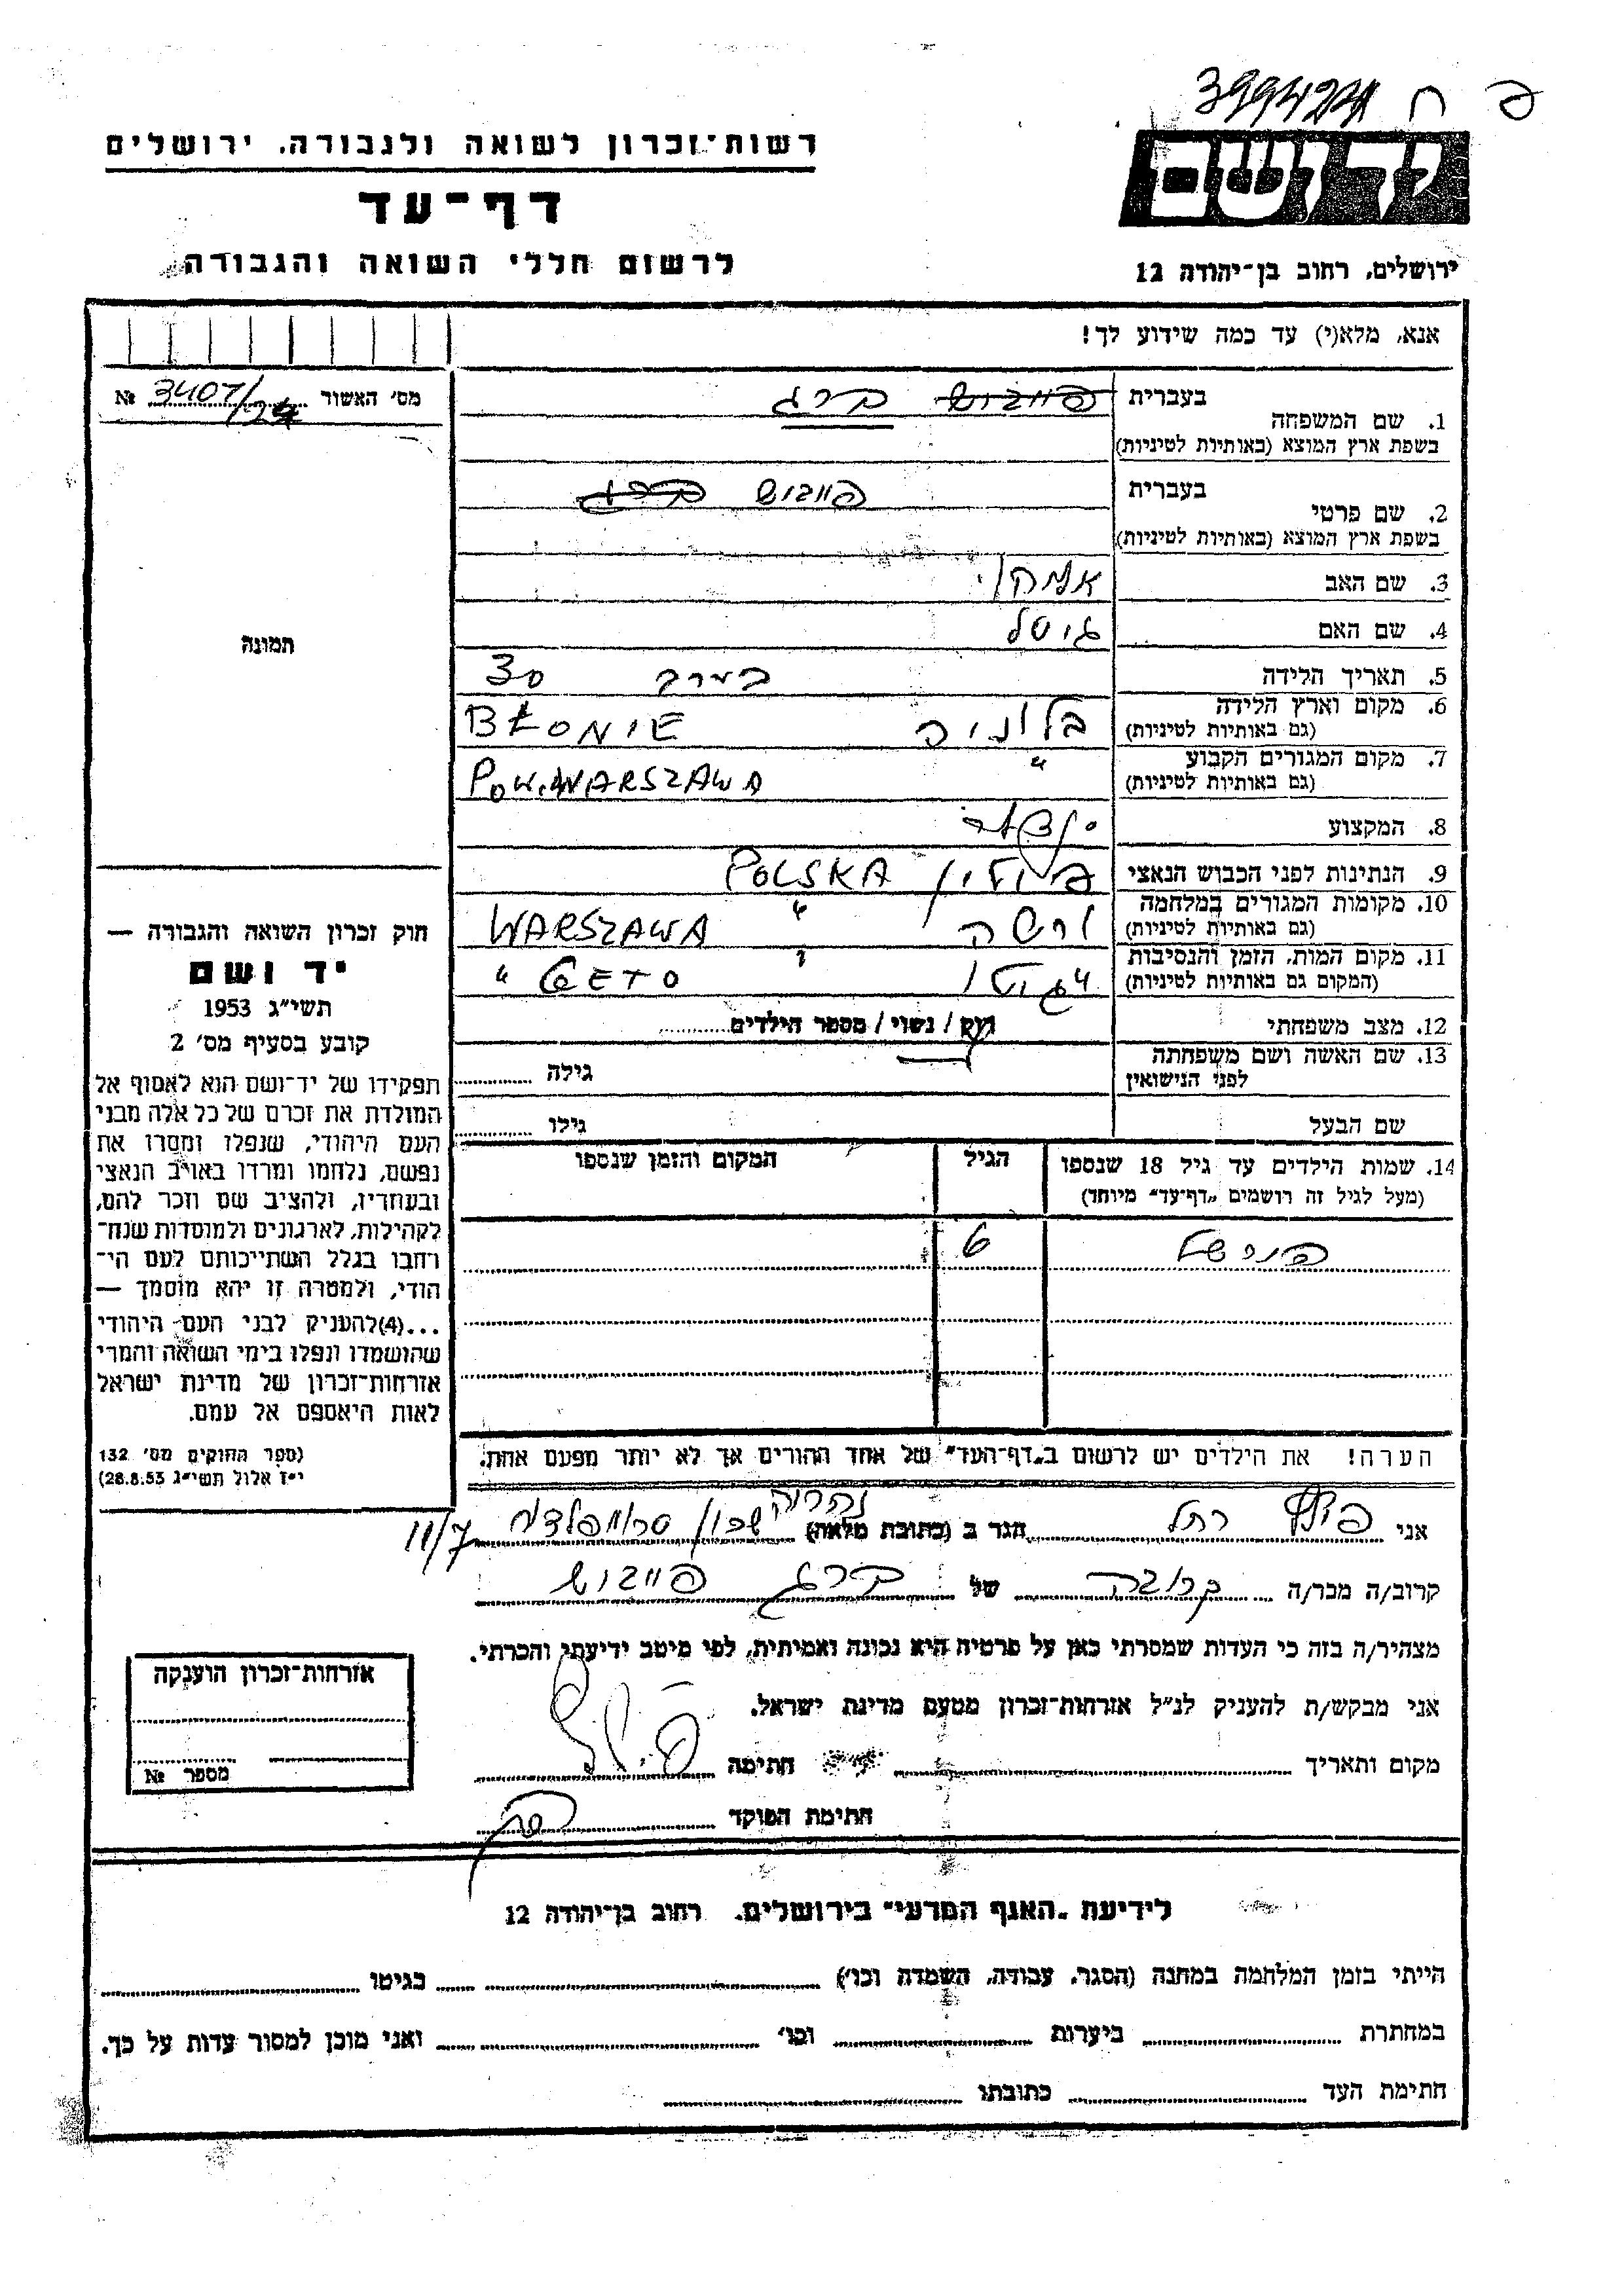 399427
רשות־זכרון לשואה ולגבורה, ירושלים
דף־עד
לרשום חללי השואה והגבורה
יד ושם
ירושלים, רחוב בן־יהודה 12
אנא, מלא(י) עד כמה שידוע לך!
מס׳ האשור 3407/24 №
תמונה
1. שם המשפחה
בעברית פייבוש ברג
בשפת ארץ המוצא (באותיות לטיניות)
2. שם פרטי
בעברית פייבוש ברג
בשפת ארץ המוצא (באותיות לטיניות)
3. שם האב
4. שם האם גיטל
5. תאריך הלידה בערך 30
6. מקום וארץ הלידה בלוניה BŁONIE
(גם באותיות לטיניות)
7. מקום המגורים הקבוע " POW. WARSZAWA
(גם באותיות לטיניות)
8. המקצוע
9. הנתינות לפני הכבוש הנאצי פולין POLSKA
10. מקומות המגורים במלחמה ורשה " WARSZAWA
(גם באותיות לטיניות)
11. מקום המות, הזמן והנסיבות " גיטו " GETO "
(המקום גם באותיות לטיניות)
12. מצב משפחתי רווק / נשוי / מספר הילדים
13. שם האשה ושם משפחתה
לפני הנישואין
גילה
שם הבעל גילו
14. שמות הילדים עד גיל 18 שנספו הגיל המקום והזמן שנספו
(מעל לגיל זה רושמים „דף־עד” מיוחד)
6
הערה! את הילדים יש לרשום ב„דף־העד” של אחד ההורים אך לא יותר מפעם אחת.
חוק זכרון השואה והגבורה —
יד ושם
תשי״ג 1953
קובע בסעיף מס׳ 2
תפקידו של יד־ושם הוא לאסוף אל
המולדת את זכרם של כל אלה מבני
העם היהודי, שנפלו ומסרו את
נפשם, נלחמו ומרדו באויב הנאצי
ובעוזריו, ולהציב שם וזכר להם,
לקהילות, לארגונים ולמוסדות שנח־
רבו בגלל השתייכותם לעם הי־
הודי, ולמטרה זו יהא מוסמך —
...(4) להעניק לבני העם היהודי
שהושמדו ונפלו בימי השואה והמרי
אזרחות־זכרון של מדינת ישראל
לאות היאספם אל עמם.
(ספר החוקים מס׳ 132
י״ז אלול תשי״ג 28.8.53)
אני רחל הגר ב (כתובת מלאה) נהריה שכון 11/7
קרוב/ה מכר/ה קרובה של ברג פייבוש
מצהיר/ה בזה כי העדות שמסרתי כאן על פרטיה היא נכונה ואמיתית, לפי מיטב ידיעתי והכרתי.
אני מבקש/ת להעניק לנ״ל אזרחות־זכרון מטעם מדינת ישראל.
מקום ותאריך חתימה
חתימת הפוקד
אזרחות־זכרון הוענקה
מספר №
לידיעת „האגף המדעי” בירושלים, רחוב בן־יהודה 12
הייתי בזמן המלחמה במחנה (הסגר, עבודה, השמדה וכו׳) בגיטו
במחתרת ביערות וכו׳ ואני מוכן למסור עדות על כך.
חתימת העד כתובתו